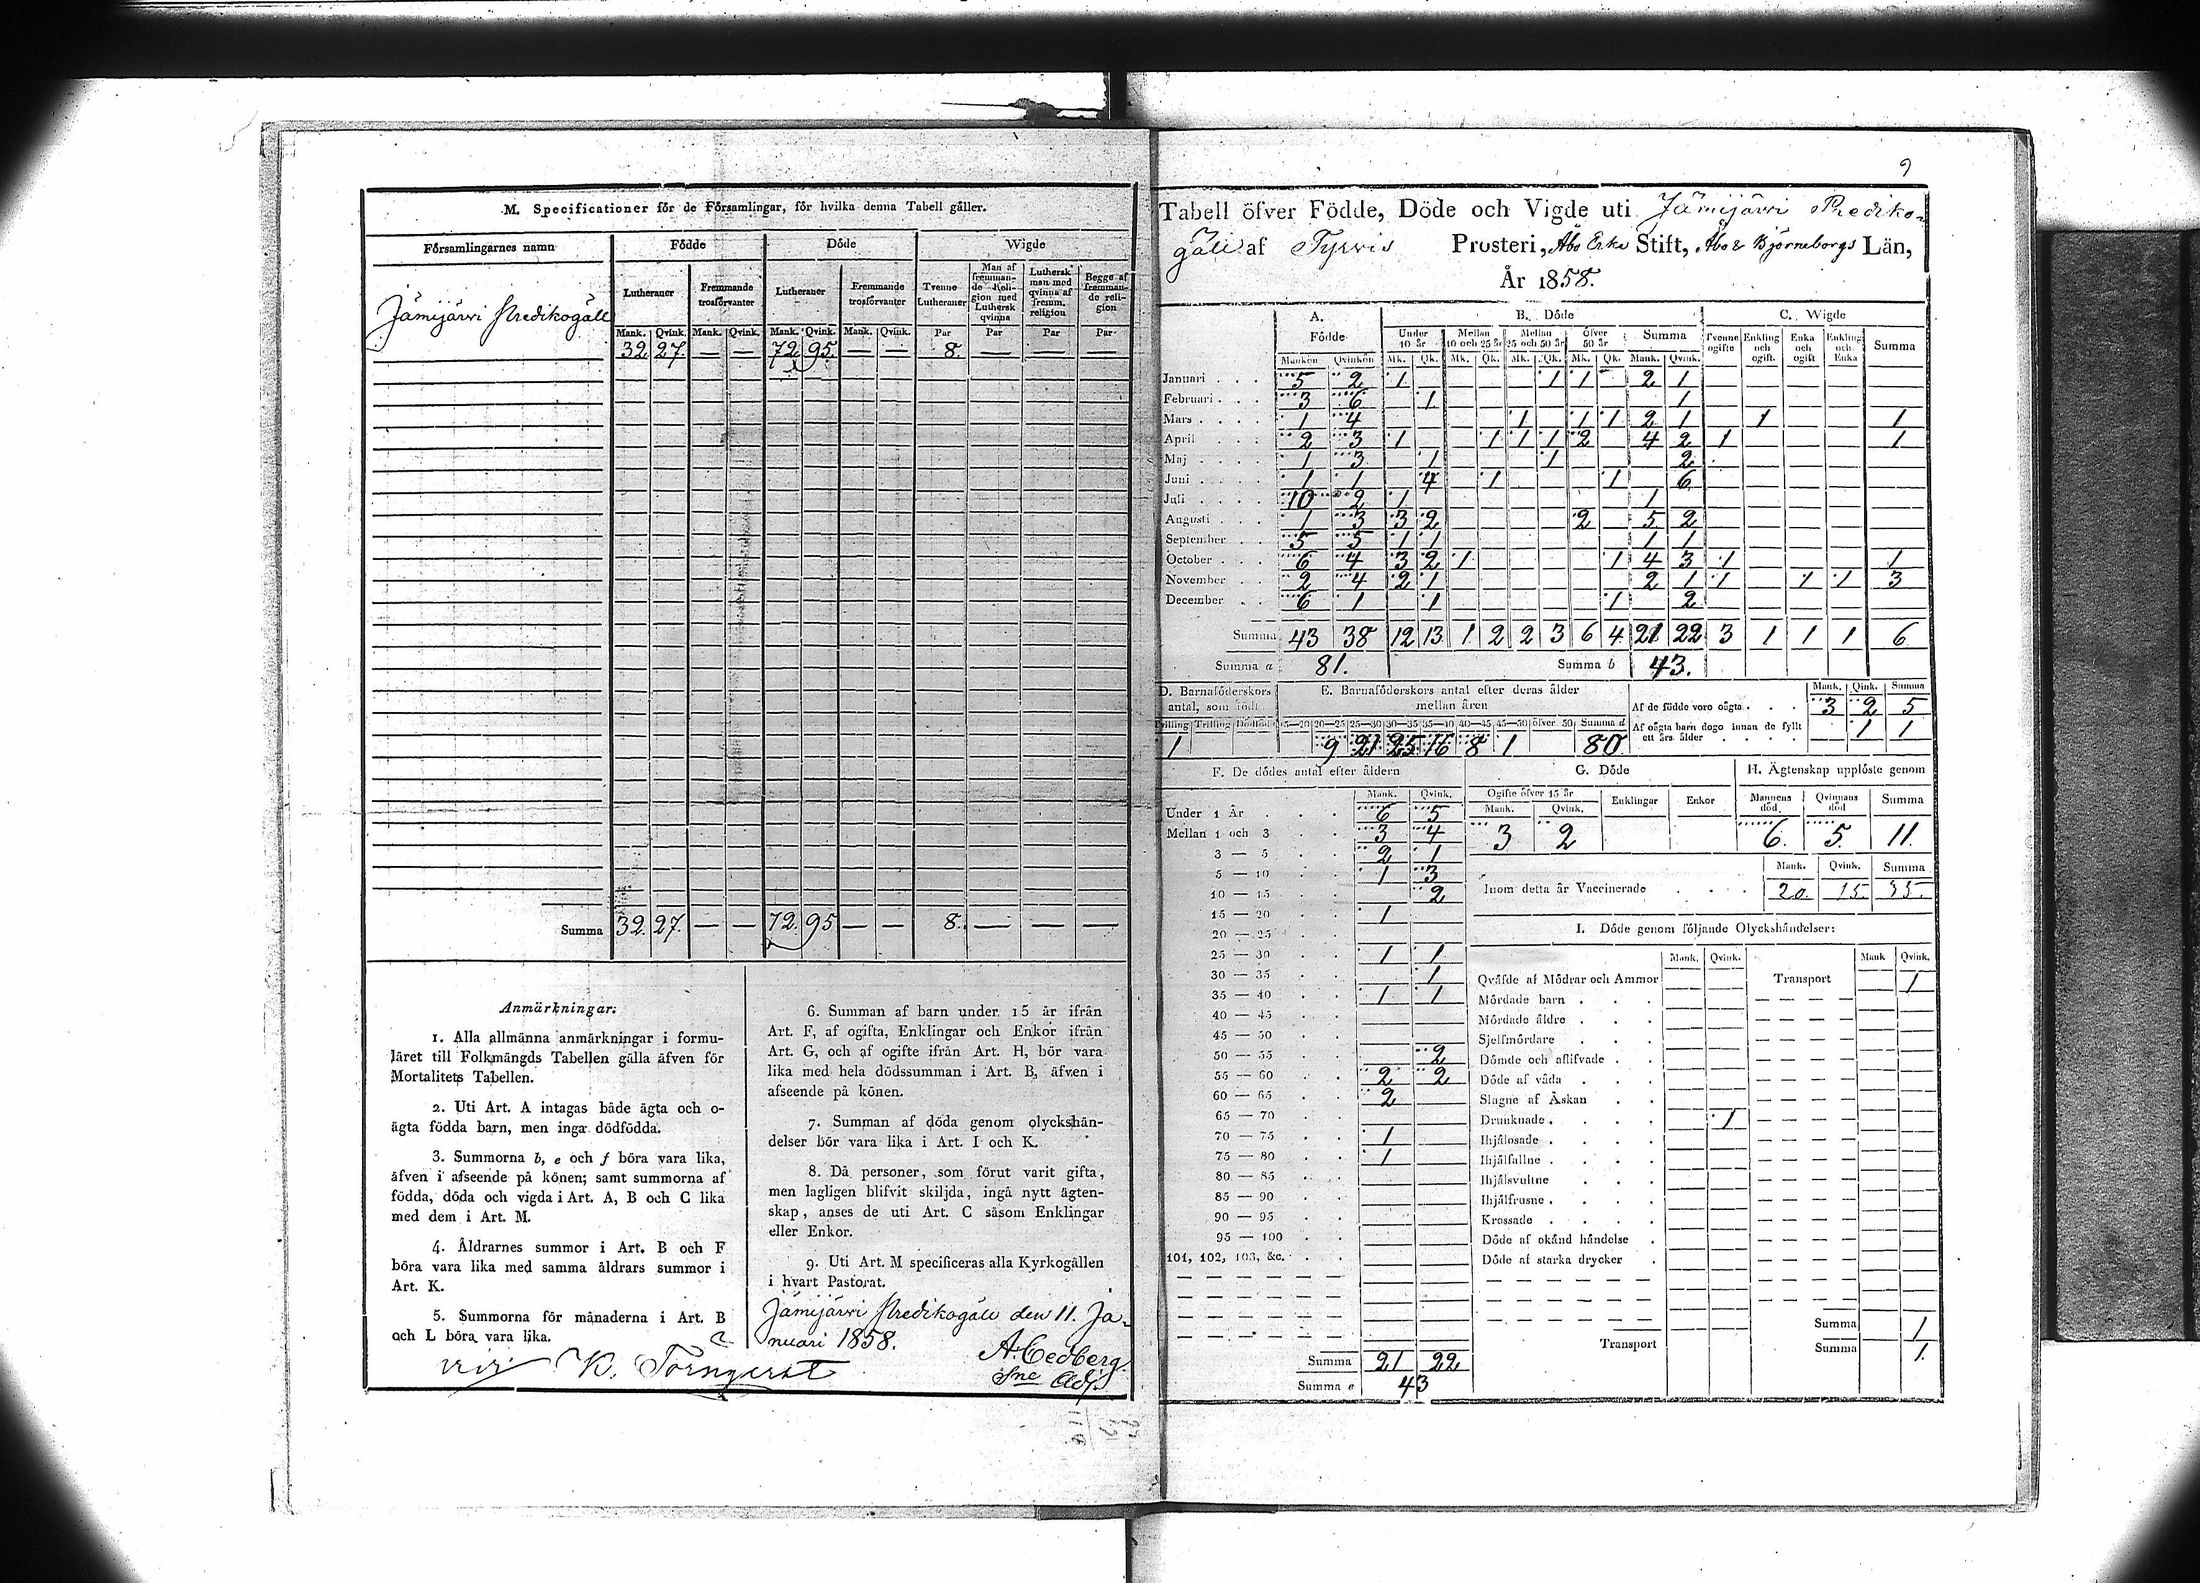 M. Specificationer för de Församlingar, för hvilka denna Tabell gäller.
Församlingarnes namn Födde Döde Wigde
Lutheraner Fremmande trosförvanter Lutheraner Fremmande trosförvanter Tvenne Lutheraner Man af fremmande Religion med Luthersk qvinna Luthersk man med qvinna af fremm. religion Begge af fremmande religion
Mank. Qvink. Mank. Qvink. Mank. Qvink. Mank. Qvink. Par Par Par Par
Jämijärvi Predikogäll 32 27. — — 72 95. — — 8. — — —
Summa 32. 27. — — 72. 95 — — 8. — — —
Anmärkningar:
1. Alla allmänna anmärkningar i formu-
läret till Folkmängds Tabellen gälla äfven för
Mortalitets Tabellen.
2. Uti Art. A intagas både ägta och o-
ägta födda barn, men inga dödfödda.
3. Summorna b, e och f böra vara lika,
äfven i afseende på könen; samt summorna af
födda, döda och vigda i Art. A, B och C lika
med dem i Art. M.
4. Åldrarnes summor i Art. B och F
böra vara lika med samma åldrars summor i
Art. K.
5. Summorna för månaderna i Art. B
och L böra vara lika.
6. Summan af barn under 15 år ifrån
Art. F, af ogifta, Enklingar och Enkor ifrån
Art. G, och af ogifte ifrån Art. H, bör vara
lika med hela dödssumman i Art. B, äfven i
afseende på könen.
7. Summan af döda genom olyckshän-
delser bör vara lika i Art. I och K.
8. Då personer, som förut varit gifta,
men lagligen blifvit skiljda, ingå nytt ägten-
skap, anses de uti Art. C såsom Enklingar
eller Enkor.
9. Uti Art. M specificeras alla Kyrkogällen
i hvart Pastorat.
Jämijärvi Predikogäll den 11. Ja-
nuari 1858.
A. Cedberg.
Adj.
K. Törnqvist
9
Tabell öfver Födde, Döde och Vigde uti Jämijärvi Prediko-
gäll af Tyrvis Prosteri, Åbo Erke Stift, Åbo & Björneborgs Län,
År 1858.
A. Födde B. Döde C. Wigde
Under 10 år Mellan 10 och 25 år Mellan 25 och 50 år Öfver 50 år Summa Tvenne ogifte Enkling och ogift. Enka och ogift Enkling och Enka Summa
Mankön Qvinkön Mk. Qk. Mk. Qk. Mk. Qk. Mk. Qk. Mank. Qvink.
Januari 5 2 1 1 1 2 1
Februari 3 6 1 1
Mars 1 4 1 1 1 2 1 1 1
April 2 3 1 1 1 1 2 4 2 1 1
Maj 1 3 1 1 2
Juni 1 1 4 1 1 6
Juli 10 2 1 1
Augusti 1 3 3 2 2 5 2
September 5 5 1 1 1 1
October 6 4 3 2 1 1 4 3 1 1
November 2 4 2 1 2 1 1 1 1 3
December 6 1 1 1 2
Summa 43 38 12 13 1 2 2 3 6 4 21 22 3 1 1 1 6
Summa a 81. Summa b 43.
D. Barnaföderskors antal, som födt E. Barnaföderskors antal efter deras ålder mellan åren
Tvilling Trilling Dödföd 15—20 20—25 25—30 30—35 35—40 40—45 45—50 öfver 50 Summa d
1 9 21 25 16 8 1 80
Mank. Qvink. Summa
Af de födde voro oägta 3 2 5
Af oägta barn dogo innan de fyllt ett års ålder 1 1
F. De dödes antal efter åldern
Mank. Qvink.
Under 1 År 6 5
Mellan 1 och 3 3 4
3 — 5 2 1
5 — 10 1 3
10 — 15 2
15 — 20 1
20 — 25
25 — 30 1 1
30 — 35 1
35 — 40 1 1
40 — 45
45 — 50
50 — 55 2
55 — 60 2 2
60 — 65 2
65 — 70
70 — 75 1
75 — 80 1
80 — 85
85 — 90
90 — 95
95 — 100
101, 102, 103, &c.
Summa 21 22
Summa e 43
G. Döde H. Ägtenskap upplöste genom
Ogifte öfver 15 år Enklingar Enkor Mannens död Qvinnans död Summa
Mank. Qvink.
3 2 6. 5. 11.
Mank. Qvink. Summa
Inom detta år Vaccinerade 20. 15. 35.
I. Döde genom följande Olyckshändelser:
Mank. Qvink. Mank Qvink.
Qväfde af Mödrar och Ammor Transport 1
Mördade barn
Mördade äldre
Sjelfmördare
Dömde och aflifvade
Döde af våda
Slagne af Åskan
Drunknade 1
Ihjälosade
Ihjälfallne
Ihjälsvultne
Ihjälfrusne
Krossade
Döde af okänd händelse
Döde af starka drycker
Summa 1
Transport Summa 1.